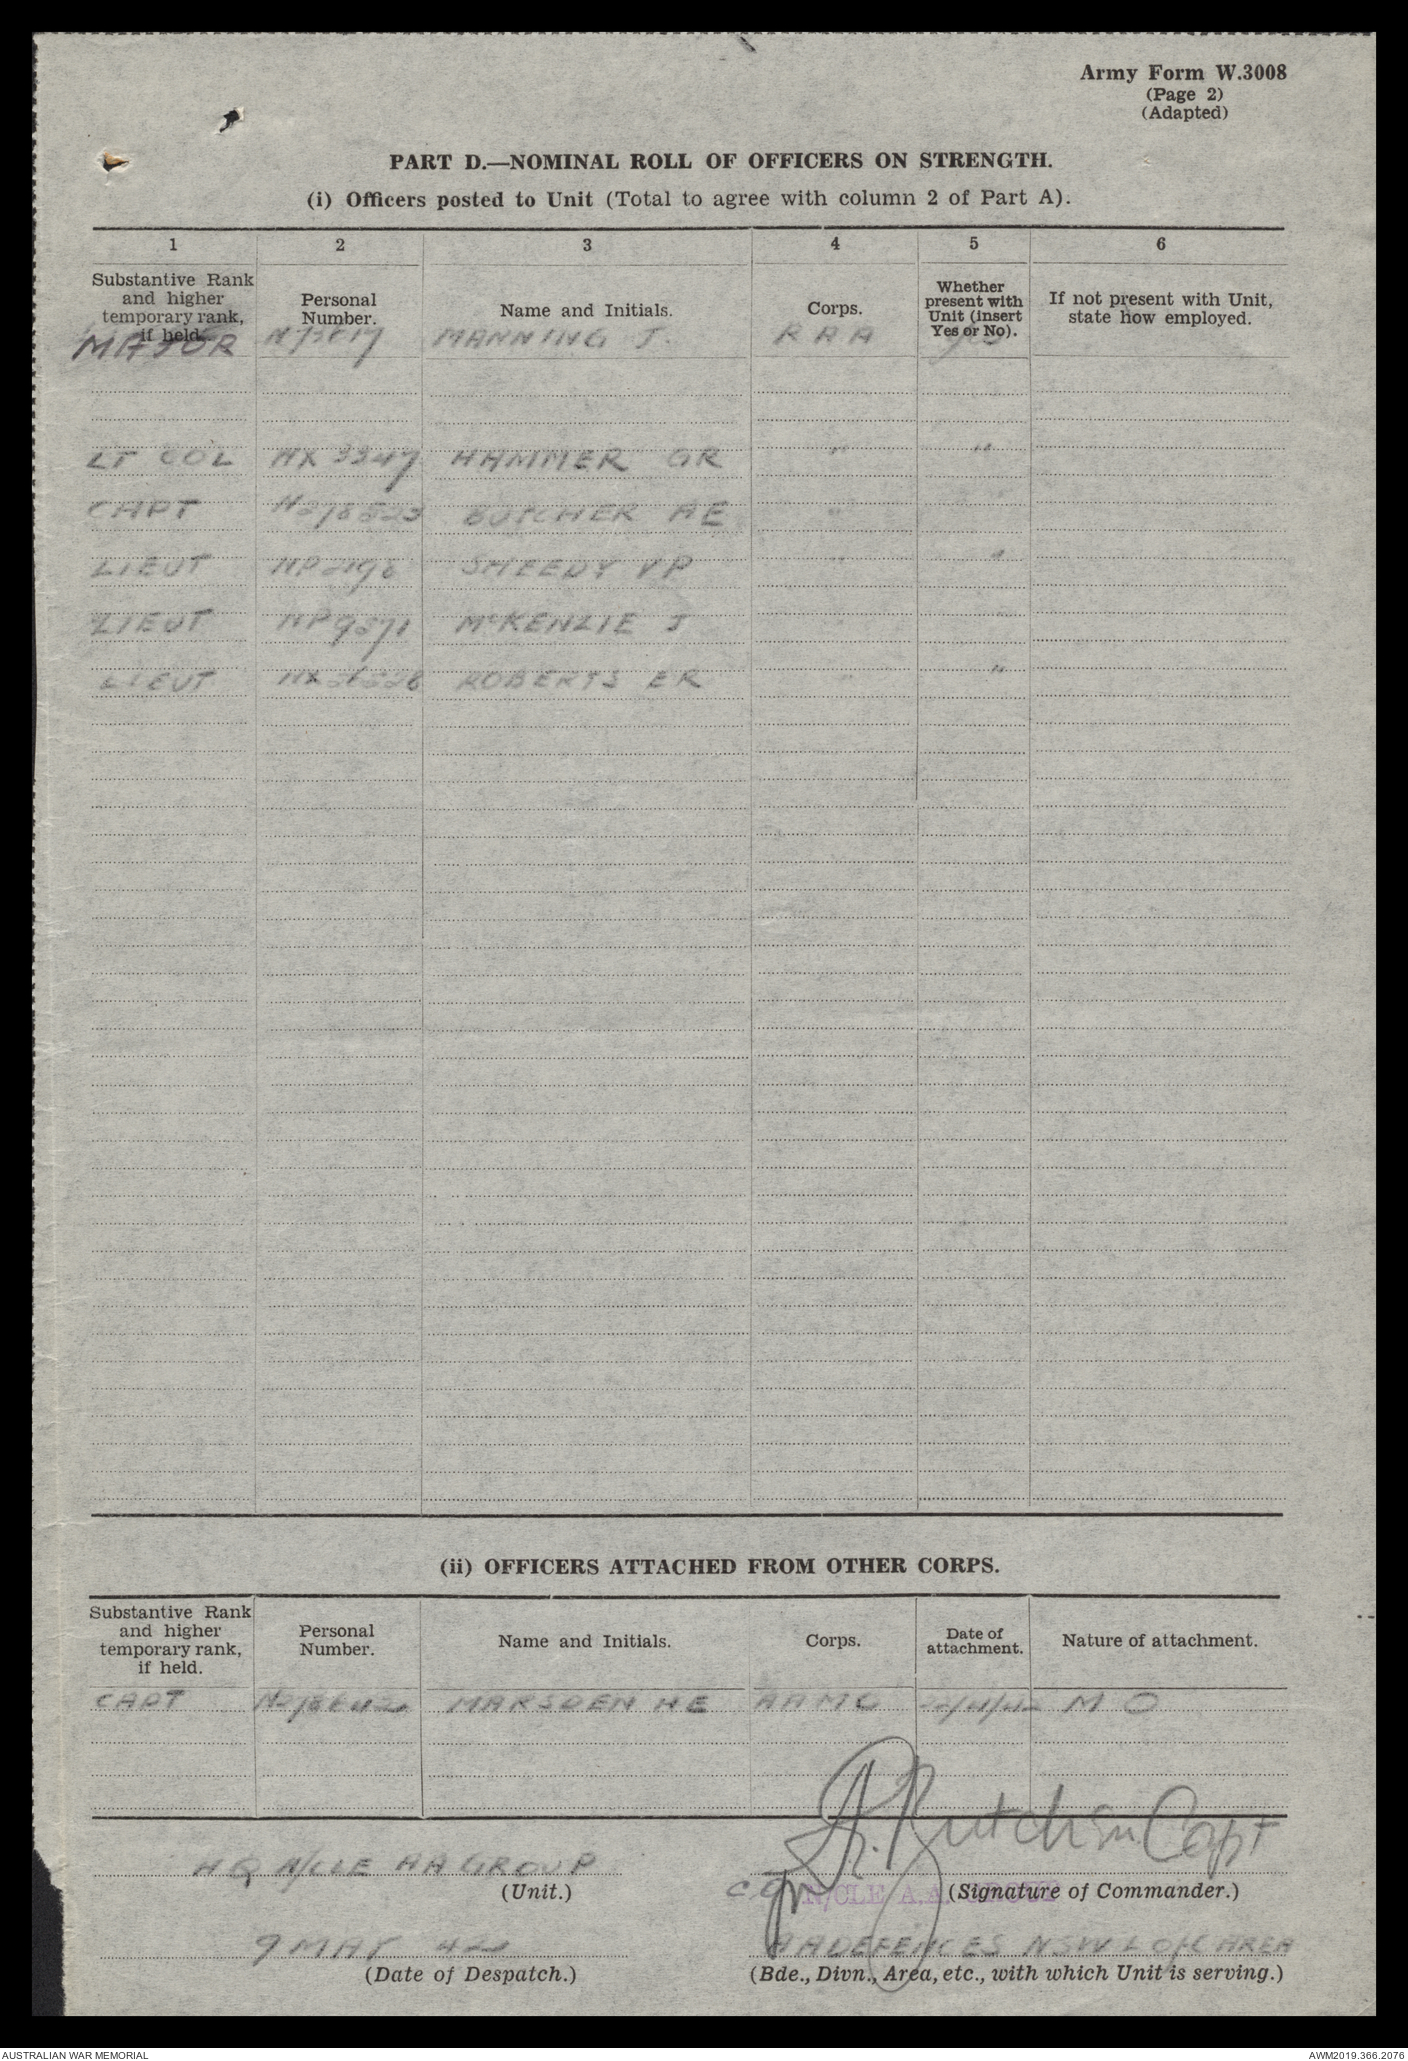 Army Form W.3008
(Page 2)
(Adapted)
PART D.—NOMINAL ROLL OF OFFICERS ON STRENGTH.
(i) Officers posted to Unit (Total to agree with column 2 of Part A).
1 2 3 4 5 6
Substantive Rank and higher temporary rank, if held. Personal Number. Name and Initials. Corps. Whether present with Unit (insert Yes or No). If not present with Unit, state how employed.
MAJOR MANNING J. R R A yes
LT COL NX 3347 HAMMER GR " "
CAPT BUTCHER AE "
LIEUT SHEEDY VP " "
LIEUT NP9571 McKENZIE J "
LIEUT ROBERTS ER " "
(ii) OFFICERS ATTACHED FROM OTHER CORPS.
Substantive Rank and higher temporary rank, if held. Personal Number. Name and Initials. Corps. Date of attachment. Nature of attachment.
CAPT MARSDEN HE AAMC M O
Butcher Capt
HQ N/CLE AA GROUP
(Unit.)
N/CLE A.A. GROUP
(Signature of Commander.)
9 MAY 42
(Date of Despatch.)
AA DEFENCES NSW L of C AREA
(Bde., Divn., Area, etc., with which Unit is serving.)
AUSTRALIAN WAR MEMORIAL
AWM2019.366.2076